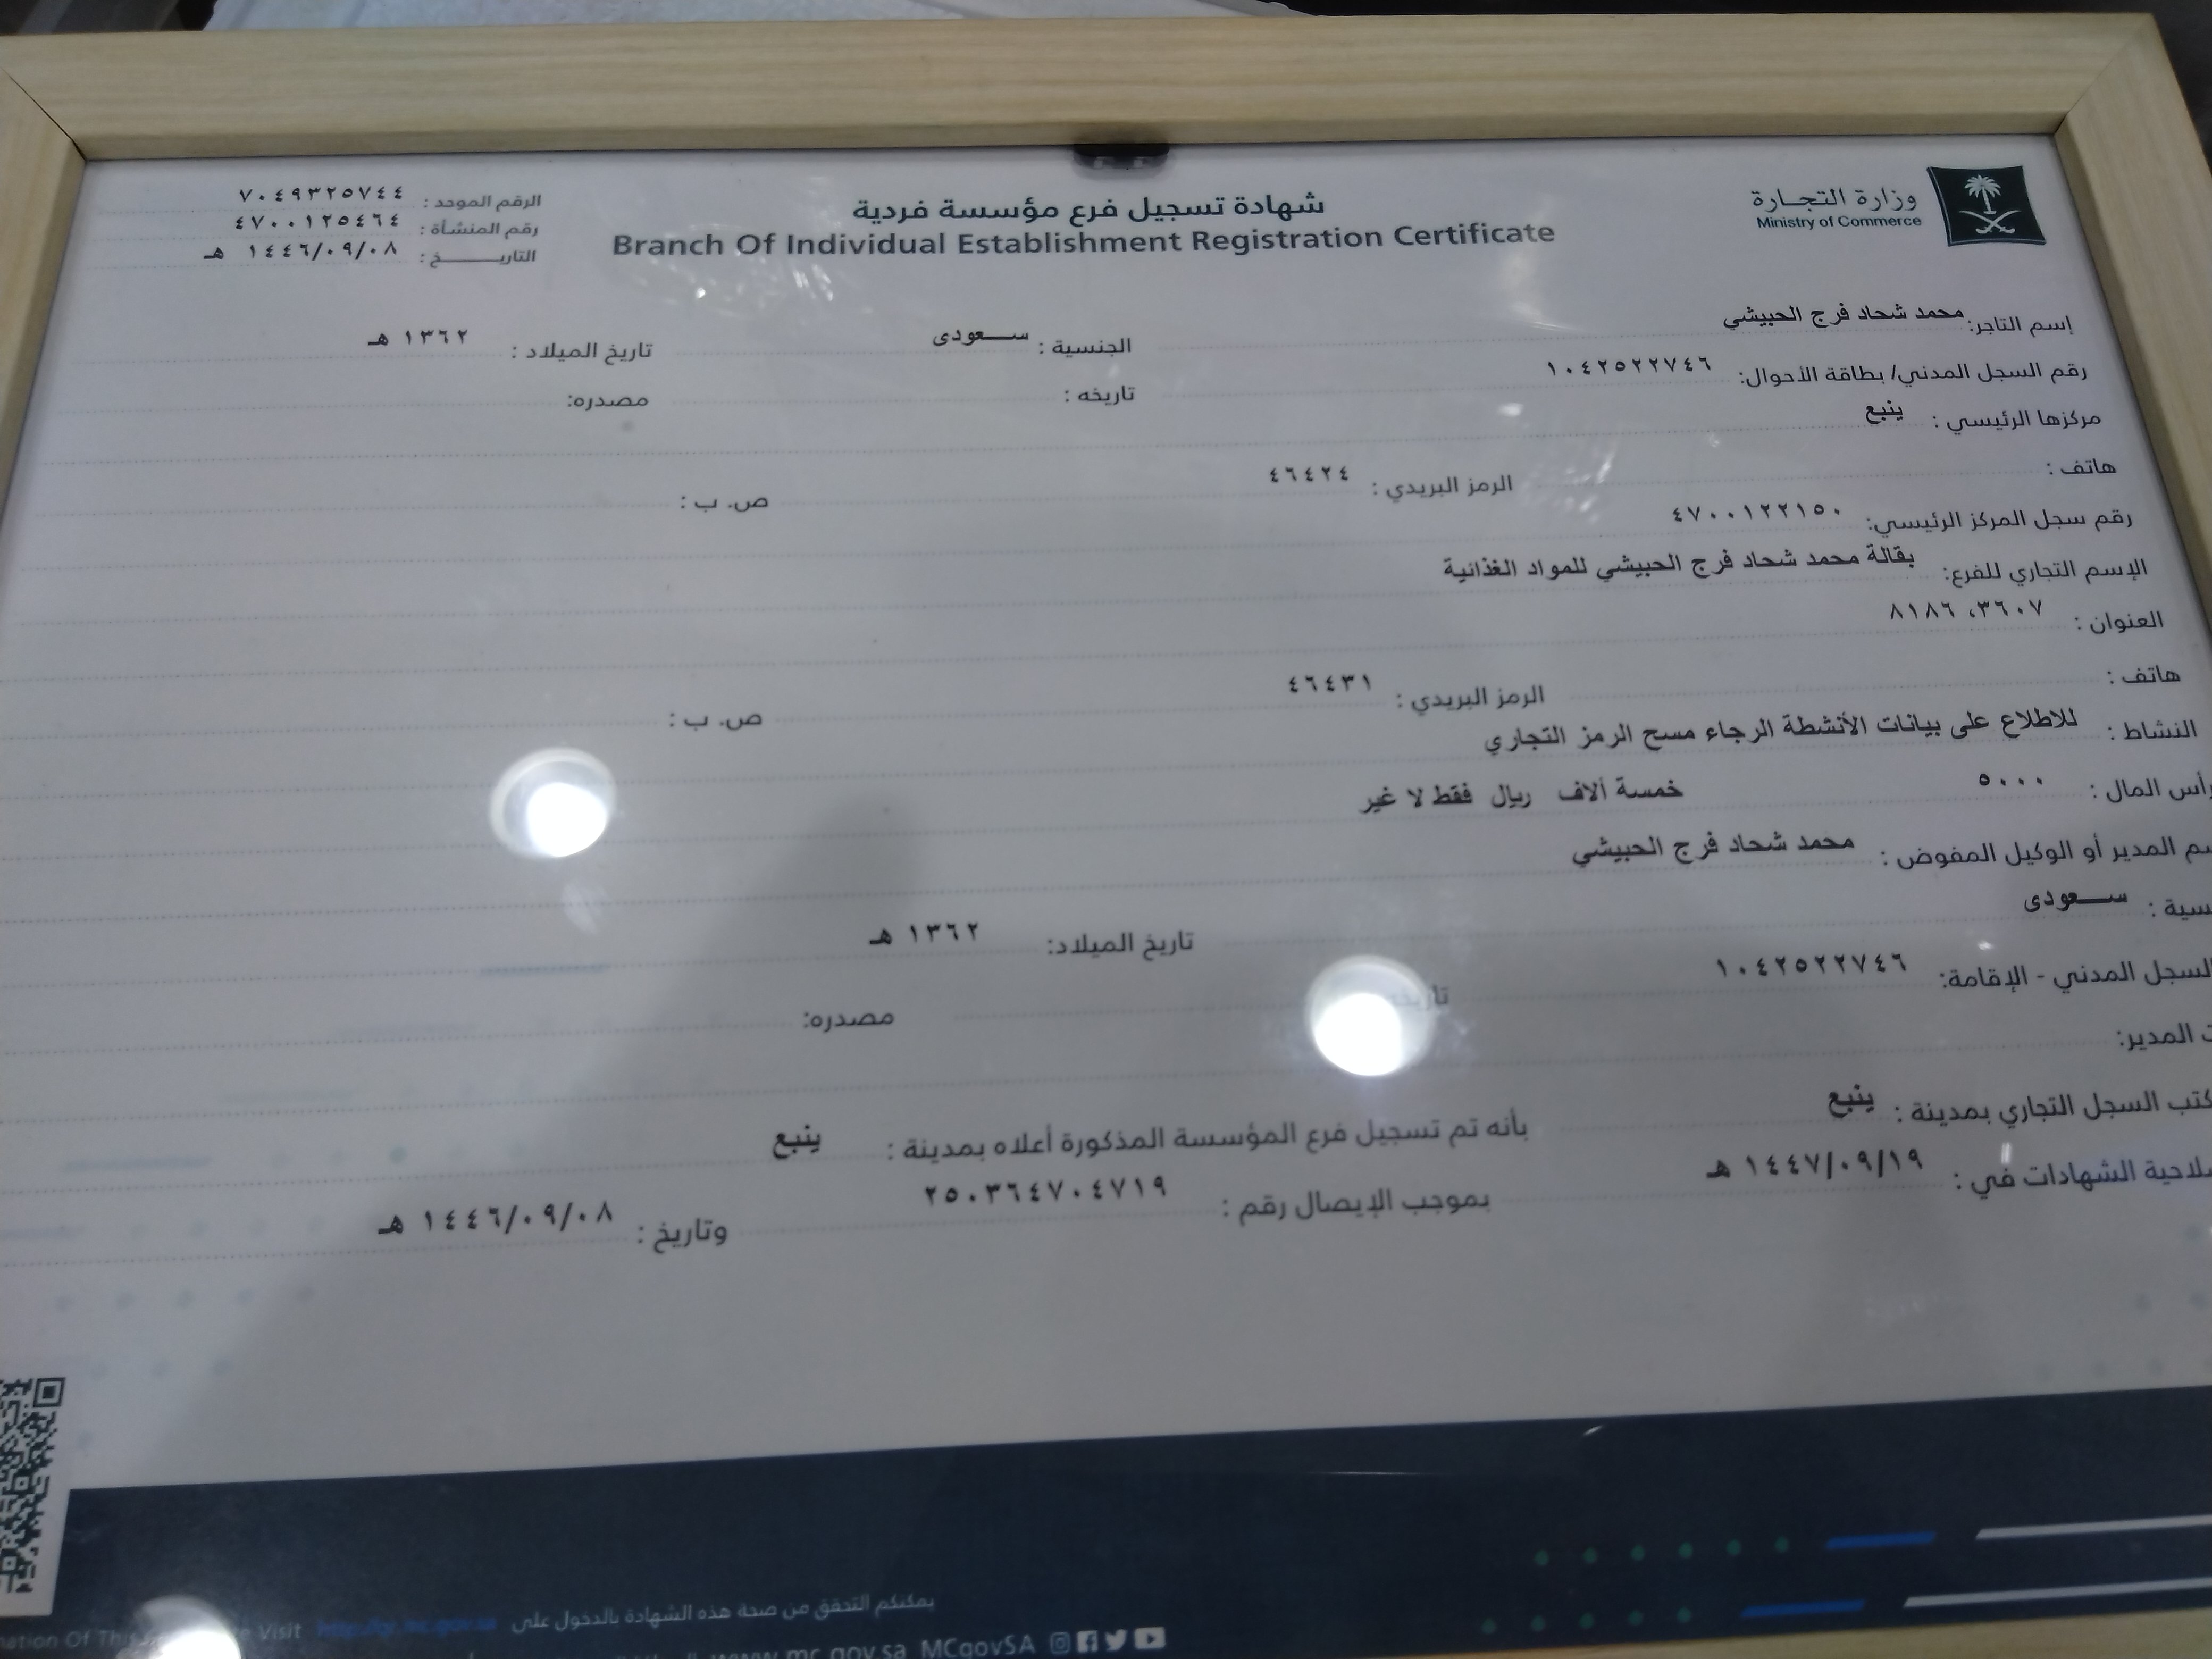 وزارة التجارة
Ministry of Commerce
شهادة تسجيل فرع مؤسسة فردية
Branch Of Individual Establishment Registration Certificate
الرقم الموحد : ٧٠٤٩٣٢٥٧٤٤
رقم المنشأة : ٤٧٠٠١٢٥٤٦٤
التاريخ : ١٤٤٦/٠٩/٠٨ هـ
إسم التاجر: محمد شحاد فرج الحبيشي الجنسية : سعودى تاريخ الميلاد : ١٣٦٢ هـ
رقم السجل المدني/ بطاقة الأحوال: ١٠٤٢٥٢٢٧٤٦ تاريخه : مصدره:
مركزها الرئيسي : ينبع
هاتف : الرمز البريدي : ٤٦٤٢٤ ص. ب :
رقم سجل المركز الرئيسي: ٤٧٠٠١٢٢١٥٠
الإسم التجاري للفرع: بقالة محمد شحاد فرج الحبيشي للمواد الغذائية
العنوان : ٣٦٠٧، ٨١٨٦
هاتف : الرمز البريدي : ٤٦٤٣١ ص. ب :
النشاط : للاطلاع على بيانات الأنشطة الرجاء مسح الرمز التجاري
رأس المال : ٥٠٠٠ خمسة آلاف ريال فقط لا غير
سم المدير أو الوكيل المفوض : محمد شحاد فرج الحبيشي
سية : سعودى تاريخ الميلاد: ١٣٦٢ هـ
السجل المدني - الإقامة: ١٠٤٢٥٢٢٧٤٦ تاريخه مصدره:
ت المدير:
كتب السجل التجاري بمدينة : ينبع بأنه تم تسجيل فرع المؤسسة المذكورة أعلاه بمدينة : ينبع
لاحية الشهادات في : ١٤٤٧/٠٩/١٩ هـ بموجب الإيصال رقم : ٢٥٠٣٦٤٧٠٤٧١٩ وتاريخ : ١٤٤٦/٠٩/٠٨ هـ
يمكنكم التحقق من صحة هذه الشهادة بالدخول على
Of This Visit
www.mc.gov.sa MCgovSA